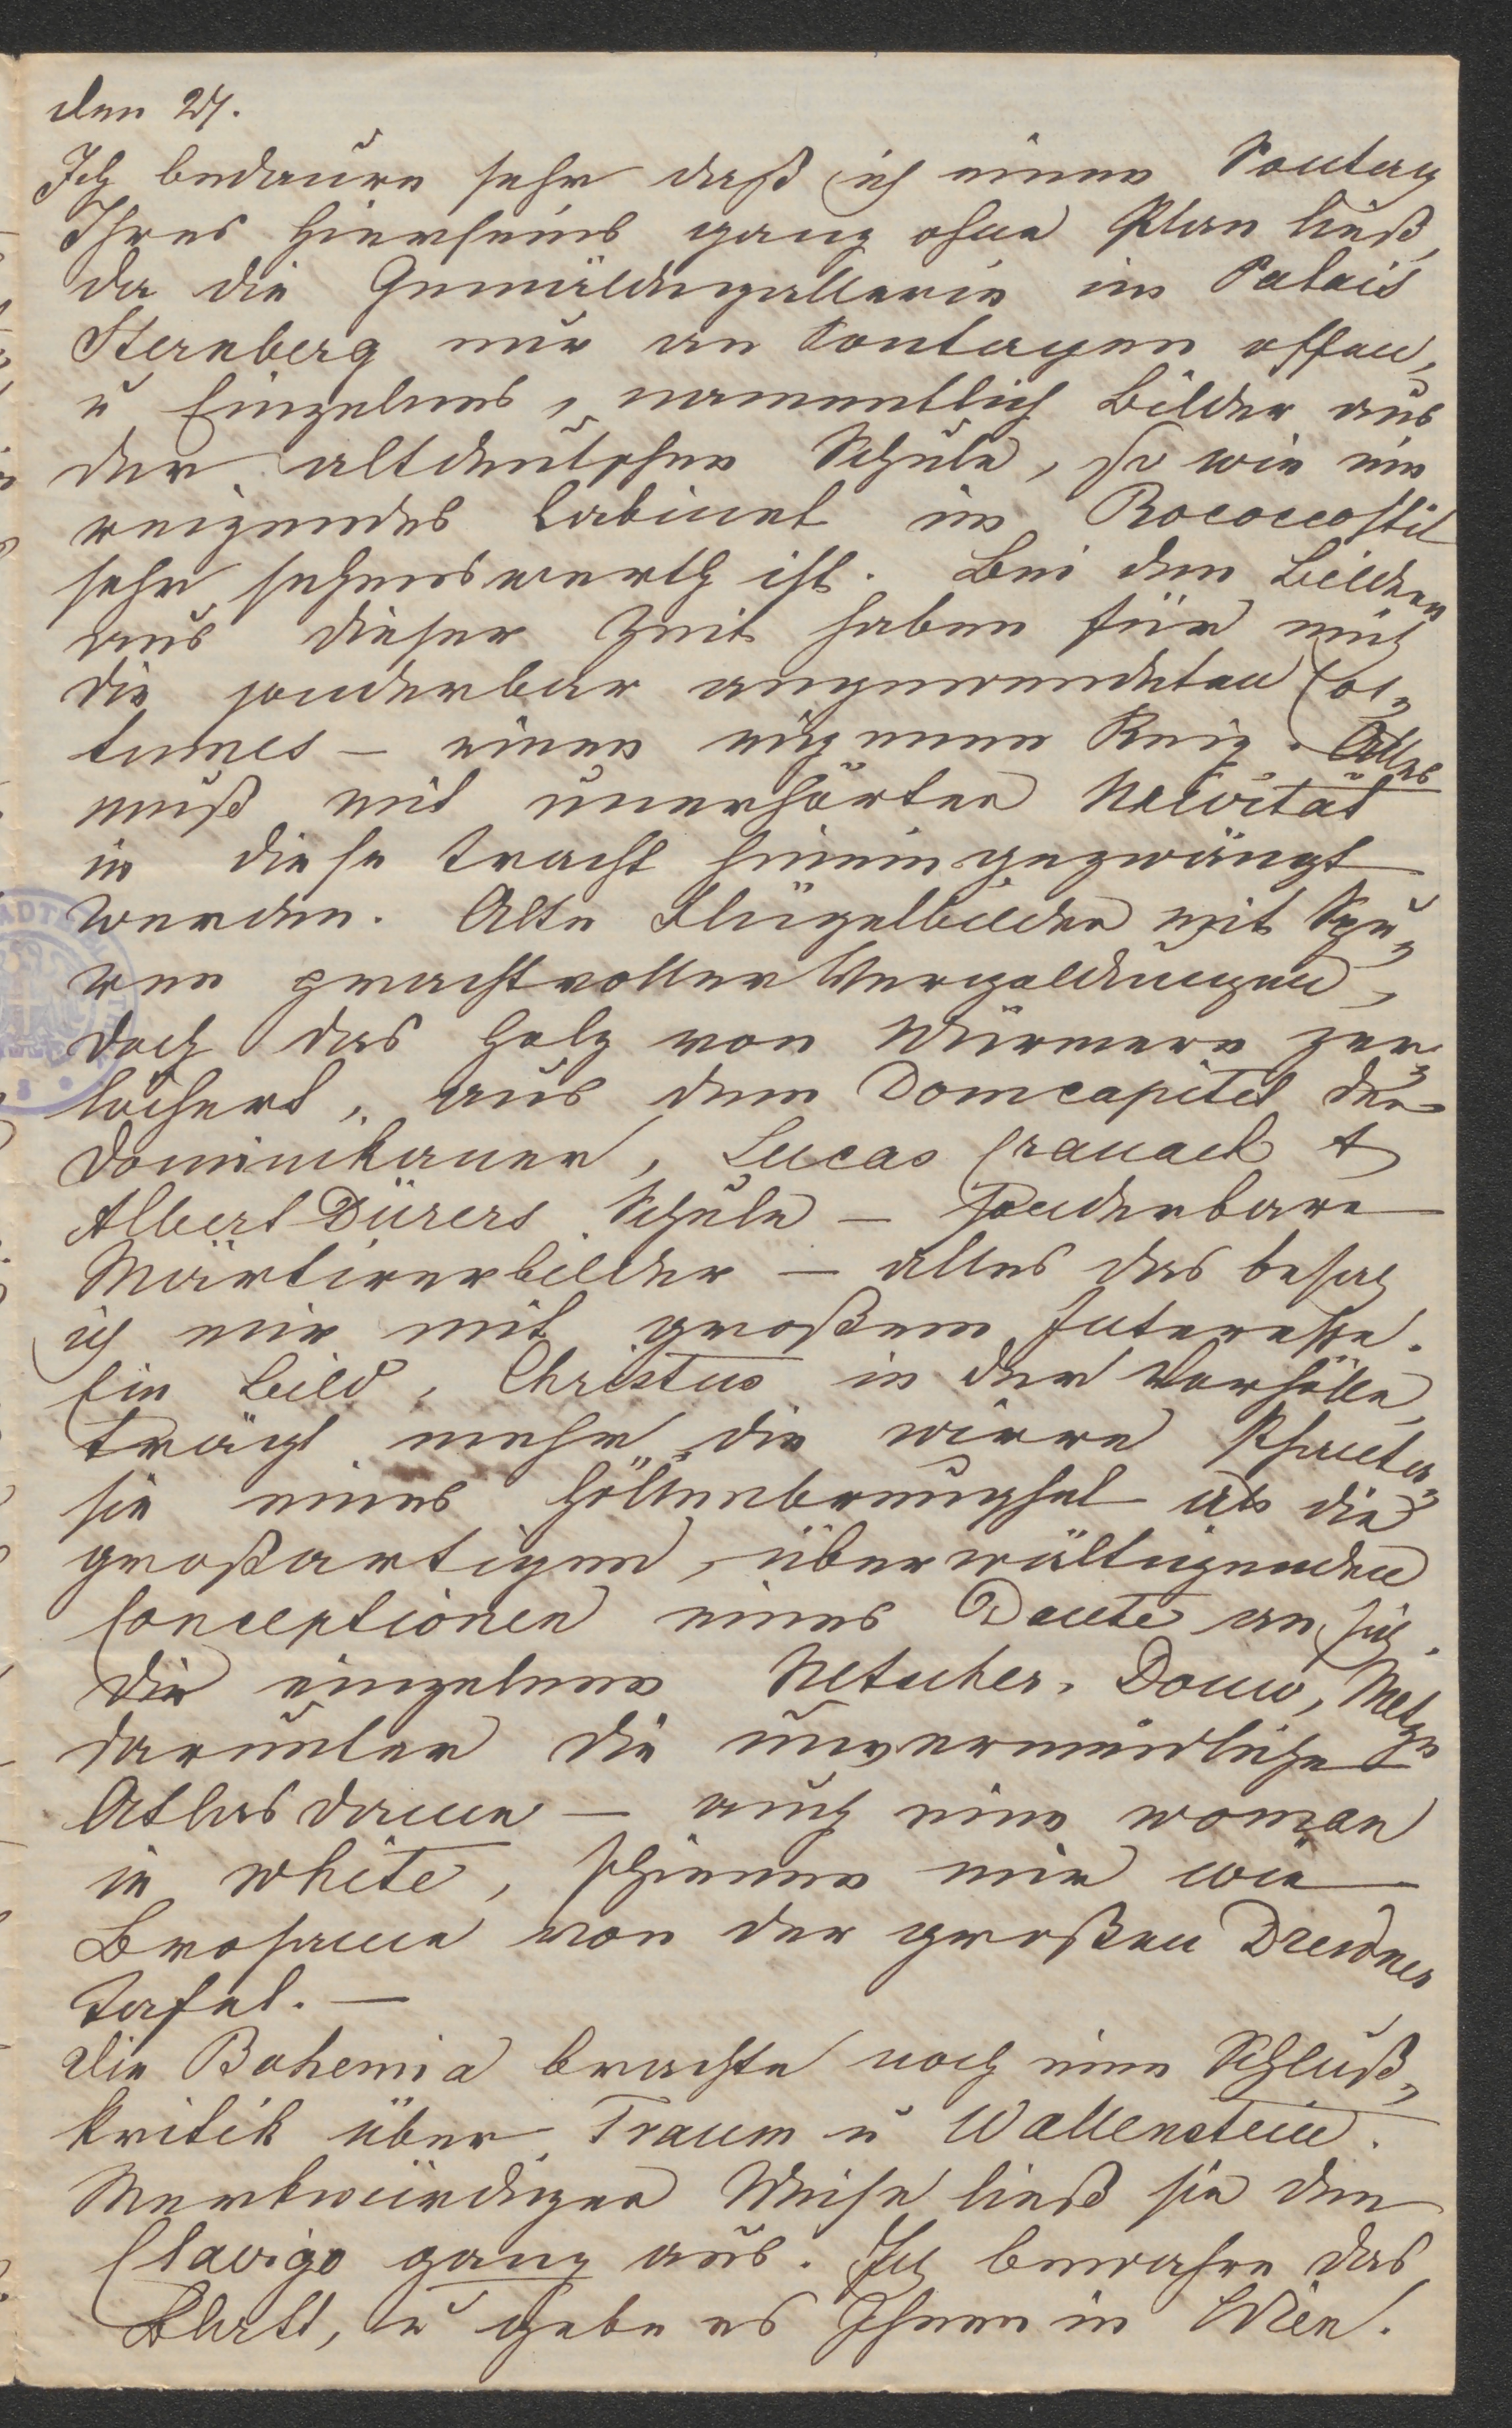 den 27.
Ich bedaure sehr daß ich einen Sontag
Ihres Hierseins ganz ohne Plan ließ,
da die Gemäldegallerie im Palais
Sternberg nur an Sontagen offen,
u Einzelnes, namentlich Bilder aus
der altdeutschen Schule, so wie ein
reizendes Cabinet im Rococcostil
sehr sehenswerth ist. Bei den Bildern
aus dieser Zeit haben für mich
die sonderbar angewendeten Cos„
tumes – einen eigenen Reiz. Alles
muß mit unerhörter Neivität
in diese Tracht hineingezwängt
werden. Alte Flügelbilder mit Spu„
ren prachtvoller Vergoldungen,
doch das Holz von Würmern zer„
löchert, aus dem Domcapitel der
Dominikaner, Lucas Cranach &
Albert Dürers Schule – sonderbare
Märtirerbilder – alles das besah
ich mir mit großem Interesse.
Ein Bild, Christus in der Vorhölle,
trägt mehr die wirre Phanta„
sie eines Höllenbreughel als die
großartigen, überwältigenden
Conceptionen eines Dante an sich.
Die einzelnen Netscher, Douw, Metzu
darunter die unvermeidliche
Atlasdame – auch eine woman
in white, schienen mir wie
Brosame von der großen Dresdner
Tafel. —
Die Bohemia brachte noch eine Schluß„
kritik über Traum u Wallenstein.
Merkwürdiger Weise ließ sie den
Clavigo ganz aus. Ich bewahre das
Blatt, u gebe es Ihnen in Wien.